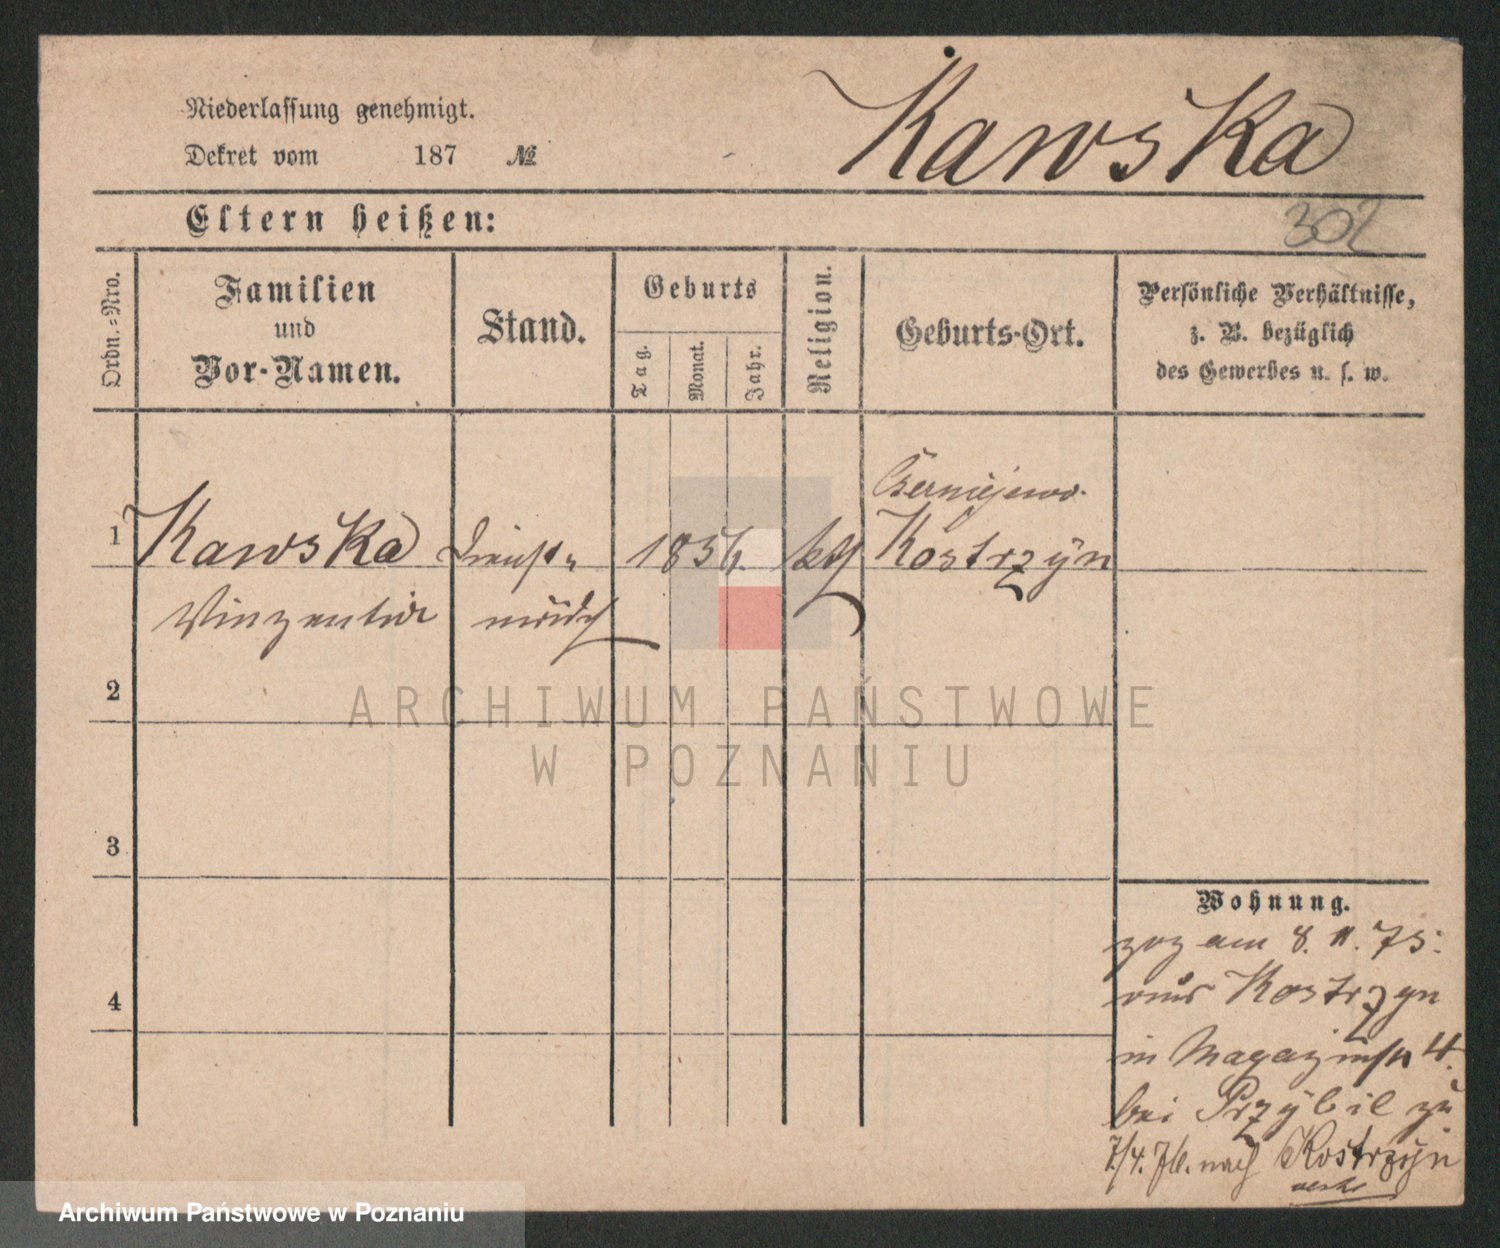 Niederlassung genehmigt.
Dekret vom 187 №
Kawska
Eltern heißen:
302
Ordn.=Nro.
Familien
und
Vor-Namen.
Stand.
Geburts
Tag.
Monat.
Jahr.
Religion.
Geburts-Ort.
Persönliche Verhältnisse,
z. B. bezüglich
des Gewerbes u. s. w.
Czerniejewo.
1 Kawska Dienst= 1856. kth Kostrzyn
Vinzentia mädch
2
3
4
ARCHIWUM PAŃSTWOWE
W POZNANIU
Wohnung.
zog am 8. 11. 75.
aus Kostrzyn
in Magazinstr 4.
bei Przybil zu
7/4. 76. nach Kostrzyn
Archiwum Państwowe w Poznaniu